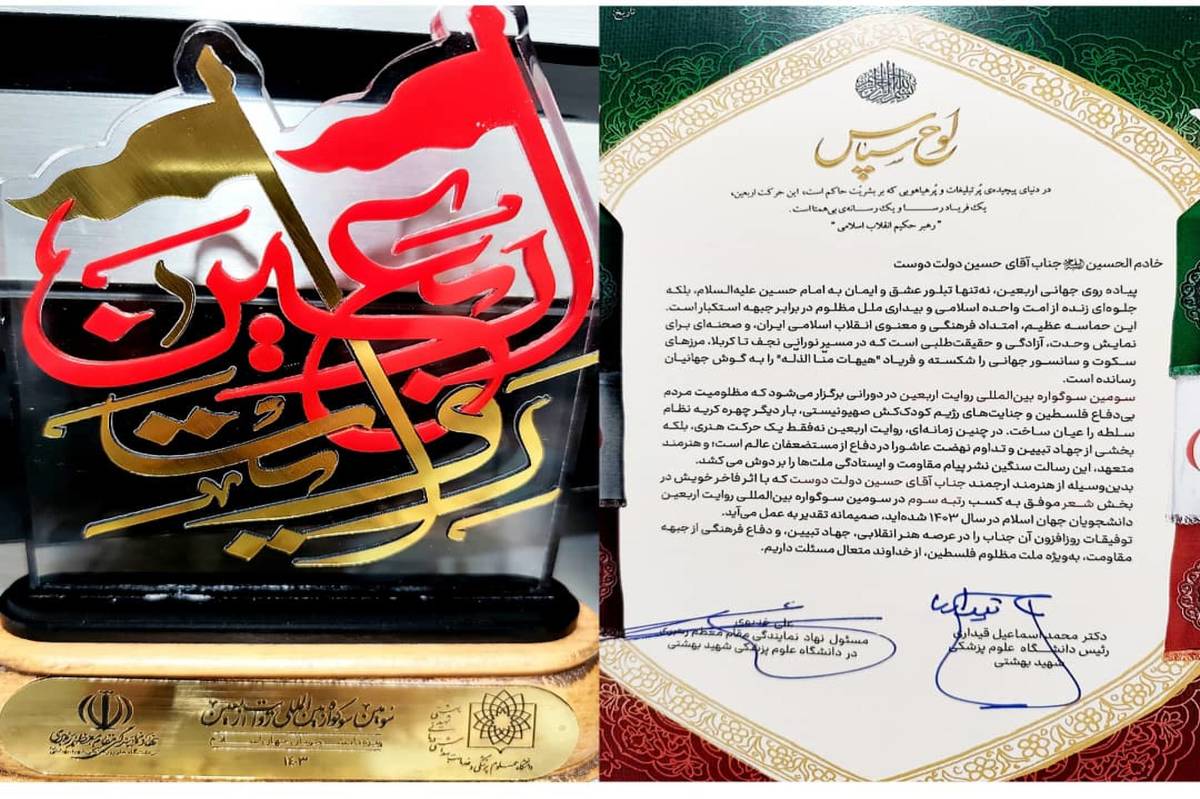 روایت اربعین
سومین سوگواره بین‌المللی روایت اربعین
۱۴۰۳
تاریخ:
لوح سپاس
در دنیای پیچیده‌ی پُر تبلیغات و پُرهیاهویی که بر بشریّت حاکم است، این حرکت اربعین،
یک فریاد رسا و یک رسانه‌ی بی‌همتا است.
"رهبر حکیم انقلاب اسلامی"
خادم الحسین جناب آقای حسین دولت دوست
پیاده روی جهانی اربعین، نه‌تنها تبلور عشق و ایمان به امام حسین علیه‌السلام، بلکه
جلوه‌ای زنده از امت واحده اسلامی و بیداری ملل مظلوم در برابر جبهه استکبار است.
این حماسه عظیم، امتداد فرهنگی و معنوی انقلاب اسلامی ایران، و صحنه‌ای برای
نمایش وحدت، آزادگی و حقیقت‌طلبی است که در مسیر نورانی نجف تا کربلا، مرزهای
سکوت و سانسور جهانی را شکسته و فریاد "هیهات منّا الذله" را به گوش جهانیان
رسانده است.
سومین سوگواره بین‌المللی روایت اربعین در دورانی برگزار می‌شود که مظلومیت مردم
بی‌دفاع فلسطین و جنایت‌های رژیم کودک‌کش صهیونیستی، بار دیگر چهره کریه نظام
سلطه را عیان ساخت. در چنین زمانه‌ای، روایت اربعین نه‌فقط یک حرکت هنری، بلکه
بخشی از جهاد تبیین و تداوم نهضت عاشورا در دفاع از مستضعفان عالم است؛ و هنرمند
متعهد، این رسالت سنگین نشر پیام مقاومت و ایستادگی ملت‌ها را بر دوش می کشد.
بدین‌وسیله از هنرمند ارجمند جناب آقای حسین دولت دوست که با اثر فاخر خویش در
بخش شعر موفق به کسب رتبه سوم در سومین سوگواره بین‌المللی روایت اربعین
دانشجویان جهان اسلام در سال ۱۴۰۳ شده‌اید، صمیمانه تقدیر به عمل می‌آید.
توفیقات روزافزون آن جناب را در عرصه هنر انقلابی، جهاد تبیین، و دفاع فرهنگی از جبهه
مقاومت، به‌ویژه ملت مظلوم فلسطین، از خداوند متعال مسئلت داریم.
دکتر محمد اسماعیل قیداری
رئیس دانشگاه علوم پزشکی
شهید بهشتی
علی
مسئول نهاد نمایندگی مقام معظم رهبری
در دانشگاه علوم پزشکی شهید بهشتی